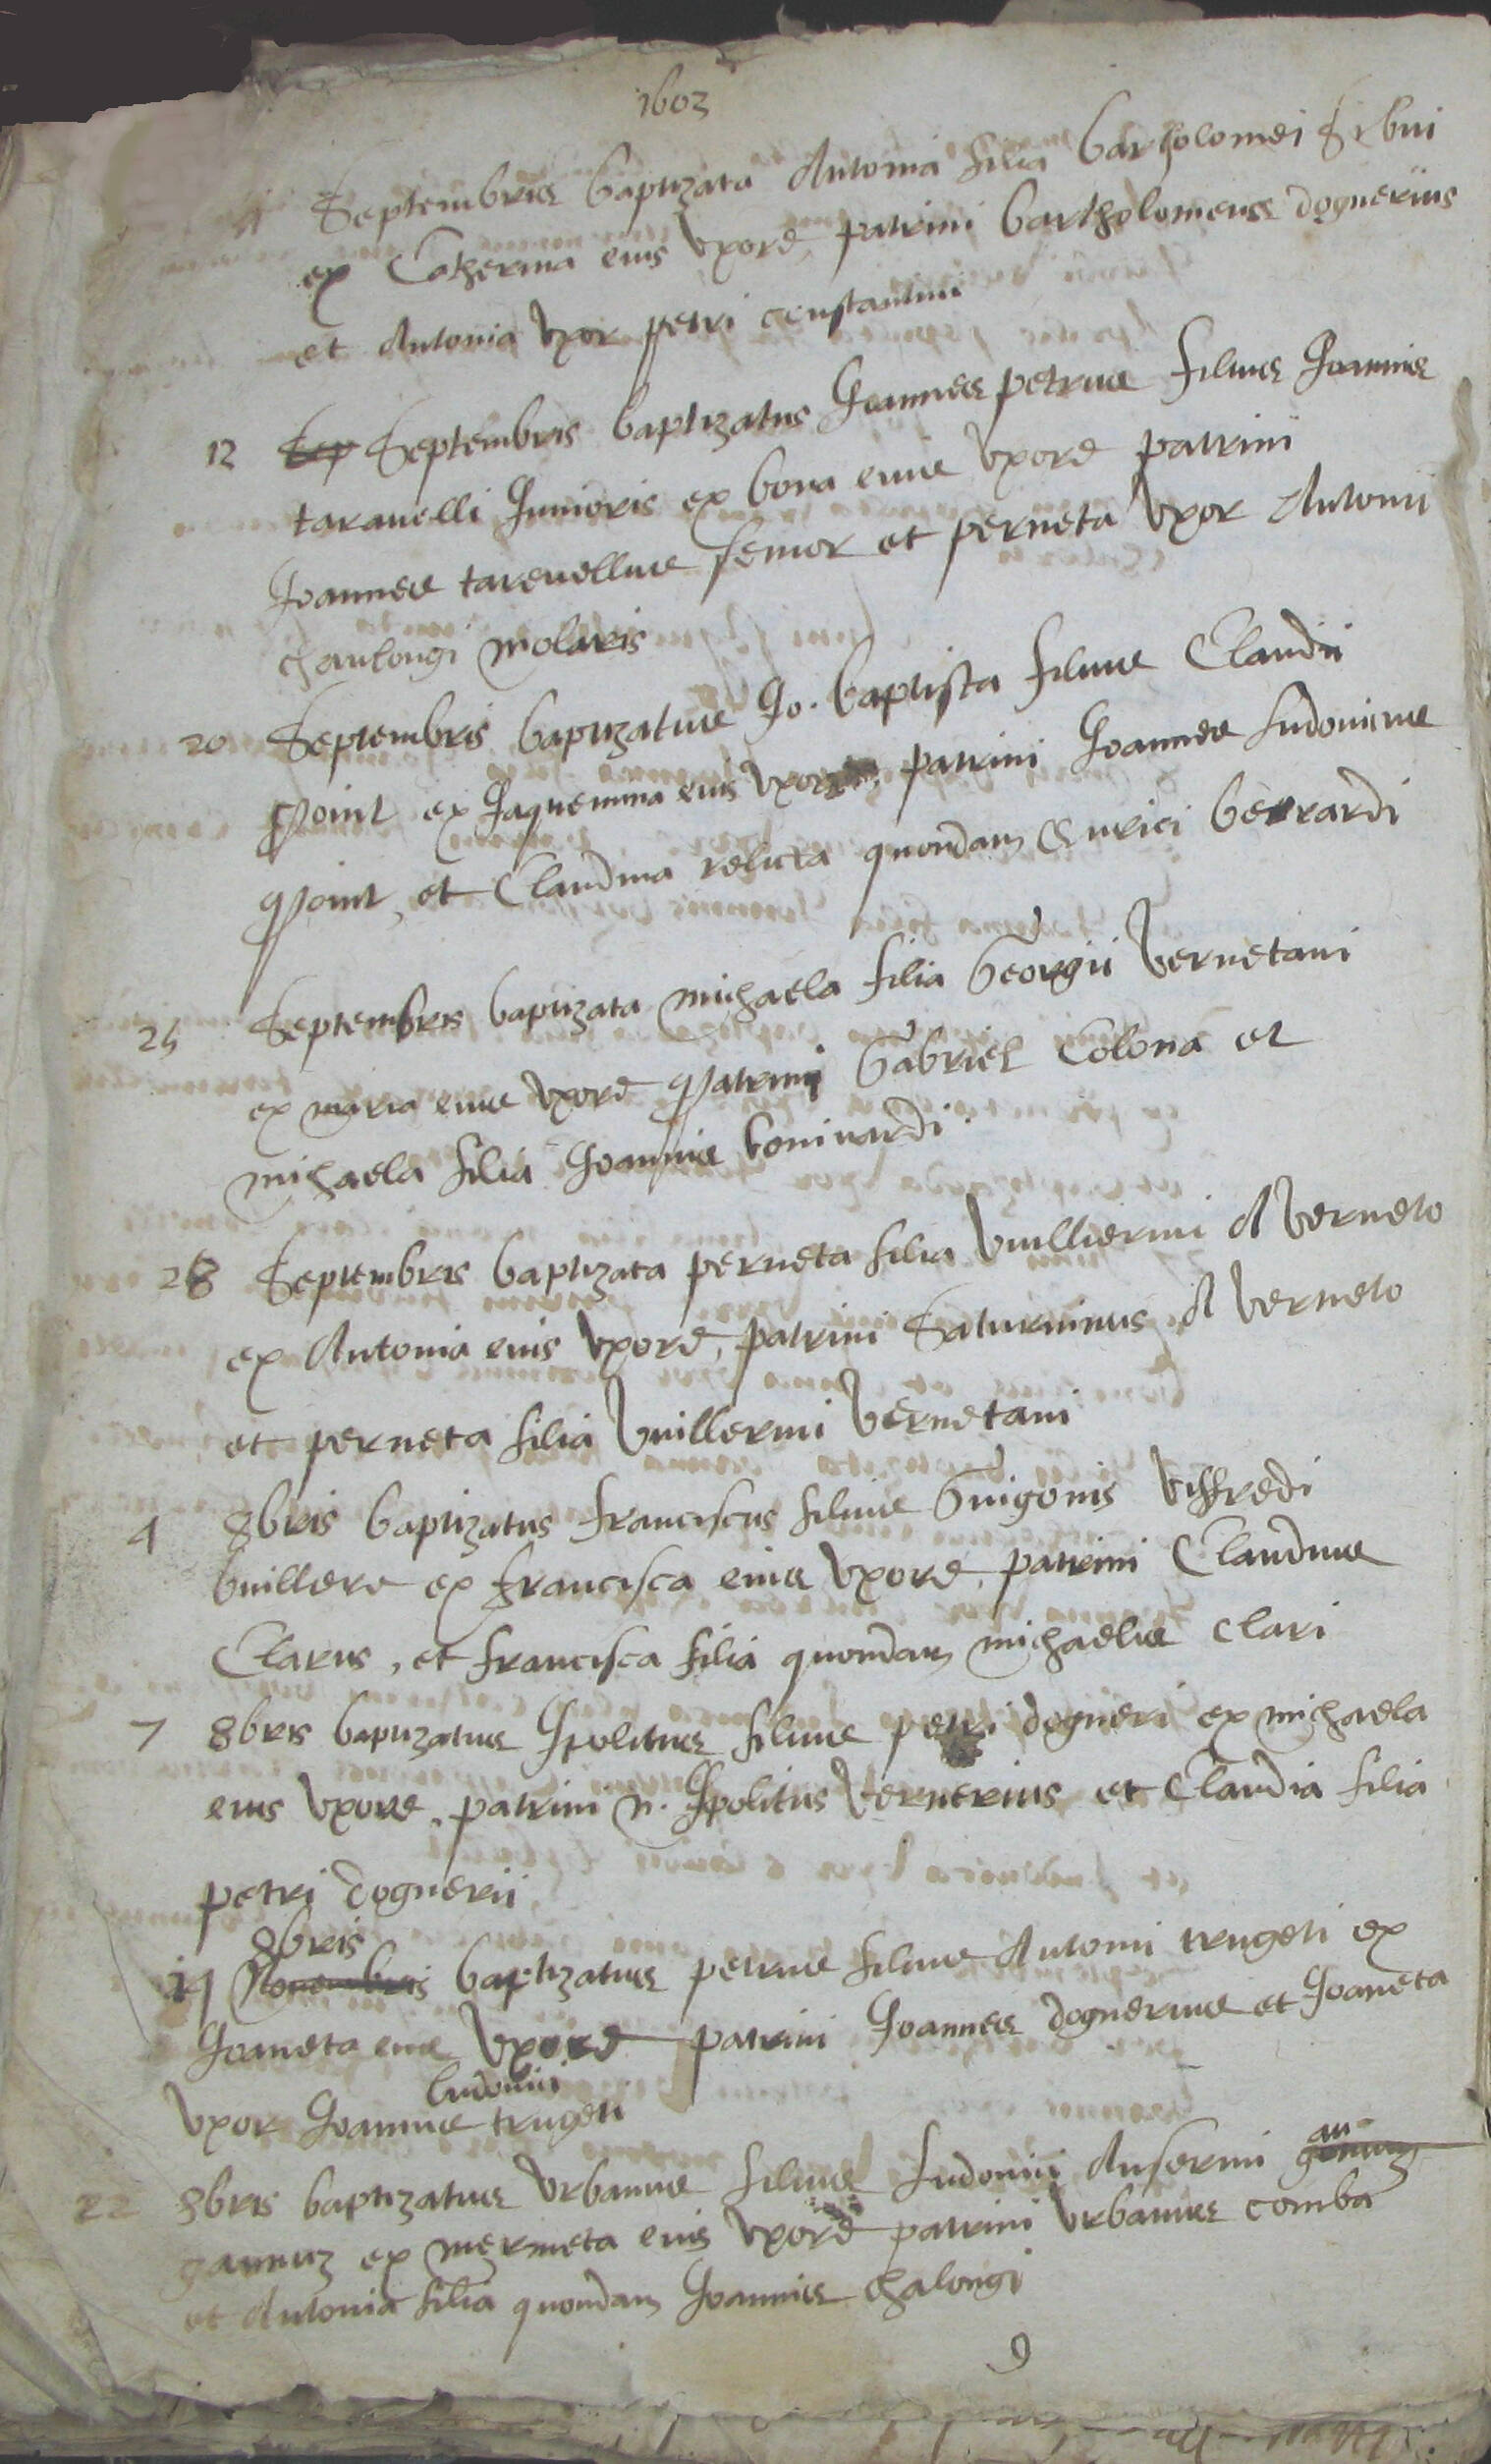 1603
11 Septembris baptizata Antonia filia bartholomei
ex Catherina eius Uxore, patrini bartholomeus dognerius
et Antonia Uxor petri constantini
12 Sep Septembris baptizatus Joannes petrus filius Joannis
taravelli Junioris ex bona eius Uxore patrini
Joannes tarevellus senior et perneta Uxor Antonii
chaulongi molaris
20 Septembris baptizatus Jo. baptista filius Claudii
Point ex Jaquemina eius Uxore, patrini Joannes Ludovicus
Point, et Claudina relicta quondam berrardi
25 Septembris baptizata michaela filia Georgii Vernetani
ex maria eius Uxore Patrini Gabriel Colona et
michaela filia Joannis bonivardi.
28 Septembris baptizata perneta filia Vuillermi A Verneto
ex Antonia eius Uxore, patrini Saturninus A Verneto
et perneta filia Vuillermi Vernetani
4 8bris baptizatus franciscus filius Guigonis Viffredi
Vuillere ex francisca eius Uxore, patrini Claudius
Clarus, et francisca filia quondam michaelis Clari
7 8bris baptizatus Ipolitus filius petri dogneri ex michaela
eius Uxore, patrini n. Ipolitus Vernerius et Claudia filia
petri dognerii
8bris
19 Novembris baptizatus petrus filius Antonii trugeti ex
Joaneta eius Uxore patrini Joannes dognerius et Joaneta
ludovici
Uxor Joannis trugeti
22 8bris baptizatus Urbanus filius Ludovici Anserini
gannuz ex mermeta eius Uxore patrini Urbanus comba
et Antonia filia quondam Joannis chalongi
9